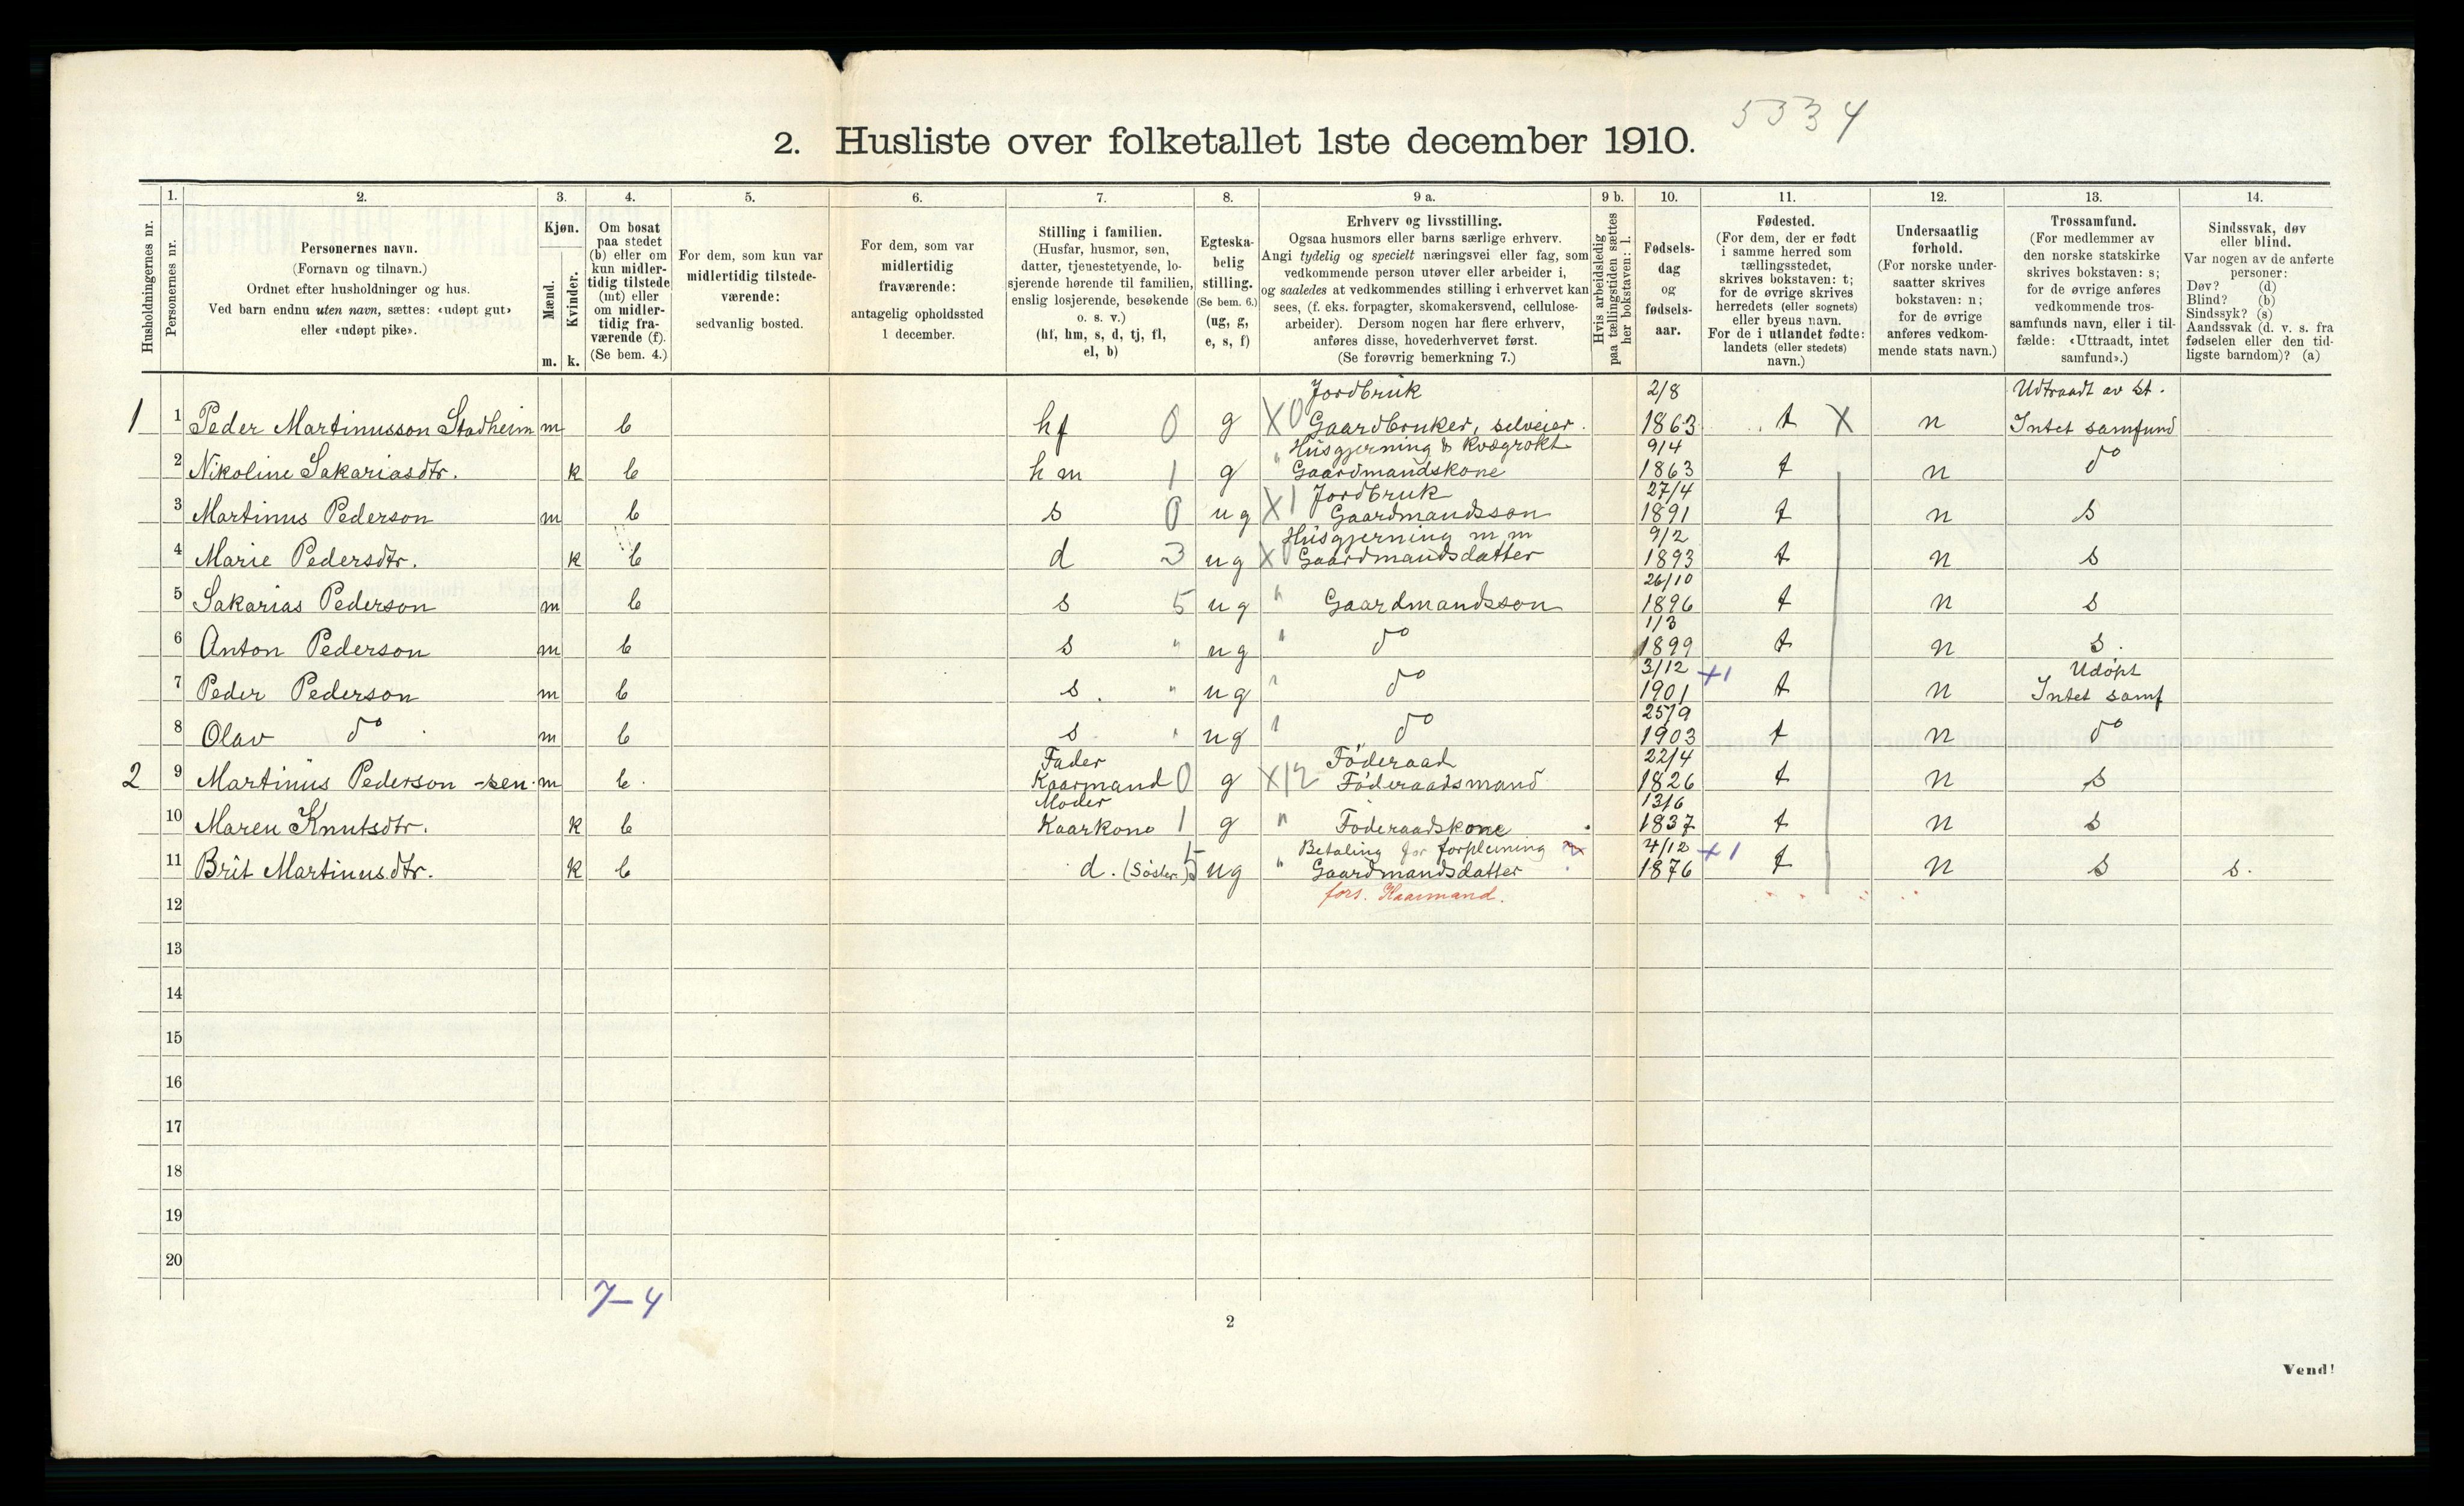 5334
2. Husliste over folketallet 1ste december 1910.
Husholdningernes nr.
1. Personernes nr.
2. Personernes navn. (Fornavn og tilnavn.) Ordnet efter husholdninger og hus. Ved barn endnu uten navn, sættes: «udøpt gut» eller «udøpt pike».
3. Kjøn. Mænd. m. Kvinder. k.
4. Om bosat paa stedet (b) eller om kun midlertidig tilstede (mt) eller om midlertidig fraværende (f). (Se bem. 4.)
5. For dem, som kun var midlertidig tilstedeværende: sedvanlig bosted.
6. For dem, som var midlertidig fraværende: antagelig opholdssted 1 december.
7. Stilling i familien. (Husfar, husmor, søn, datter, tjenestetyende, losjerende hørende til familien, enslig losjerende, besøkende o. s. v.) (hf, hm, s, d, tj, fl, el, b)
8. Egteskabelig stilling. (Se bem. 6.) (ug, g, e, s, f)
9 a. Erhverv og livsstilling. Ogsaa husmors eller barns særlige erhverv. Angi tydelig og specielt næringsvei eller fag, som vedkommende person utøver eller arbeider i, og saaledes at vedkommendes stilling i erhvervet kan sees, (f. eks. forpagter, skomakersvend, cellulosearbeider). Dersom nogen har flere erhverv, anføres disse, hovederhvervet først. (Se forøvrig bemerkning 7.)
9 b. Hvis arbeidsledig paa tællingstiden sættes her bokstaven: l.
10. Fødselsdag og fødselsaar.
11. Fødested. (For dem, der er født i samme herred som tællingsstedet, skrives bokstaven: t; for de øvrige skrives herredets (eller sognets) eller byens navn. For de i utlandet fødte: landets (eller stedets) navn.)
12. Undersaatlig forhold. (For norske undersaatter skrives bokstaven: n; for de øvrige anføres vedkommende stats navn.)
13. Trossamfund. (For medlemmer av den norske statskirke skrives bokstaven: s; for de øvrige anføres vedkommende trossamfunds navn, eller i tilfælde: «Uttraadt, intet samfund».)
14. Sindssvak, døv eller blind. Var nogen av de anførte personer: Døv? (d) Blind? (b) Sindssyk? (s) Aandssvak (d. v. s. fra fødselen eller den tidligste barndom)? (a)
Jordbruk 2/8 Udtraadt av st.
1 1 Peder Martinusson Stadheim m b hf 0 g X0 Gaardbruker, selveier. 1863 t X n Intet samfund
Husgjerning & kvægrøkt 9/4
2 Nikoline Sakariasdtr. k b hm 1 g " Gaardmandskone 1863 t n do
Jordbruk 27/4
3 Martinus Pederson m b s 0 ug X1 Gaardmandsson 1891 t n s
Husgjerning m m 9/2
4 Marie Pedersdtr. k b d 3 ug X Gaardmandsdatter 1893 t n s
26/10
5 Sakarias Pederson m b s 5 ug " Gaardmandsson 1896 t n s
1/3
6 Anton Pederson m b s " ug " do 1899 t n s.
3/12 +1 Udøpt
7 Peder Pederson m b s. " ug " do 1901 t n Intet samf
25/9
8 Olav do m b s " ug " do 1903 t n do
Fader Føderaad 22/4
2 9 Martinus Pederson -sen. m b. Kaarmand 0 g X12 Føderaadsmand 1826 t n s
Moder 13/6
10 Maren Knutsdtr. k b Kaarkone 1 g " Føderaadskone 1837 t n s
Betaling for forpleining 4/12 +1
11 Brit Martinusdtr. k b d. (Søster) 5 ug " Gaardmandsdatter 1876 t n s s.
fors. Kaarmand.
12
13
14
15
16
17
18
19
20
7-4
2
Vend!